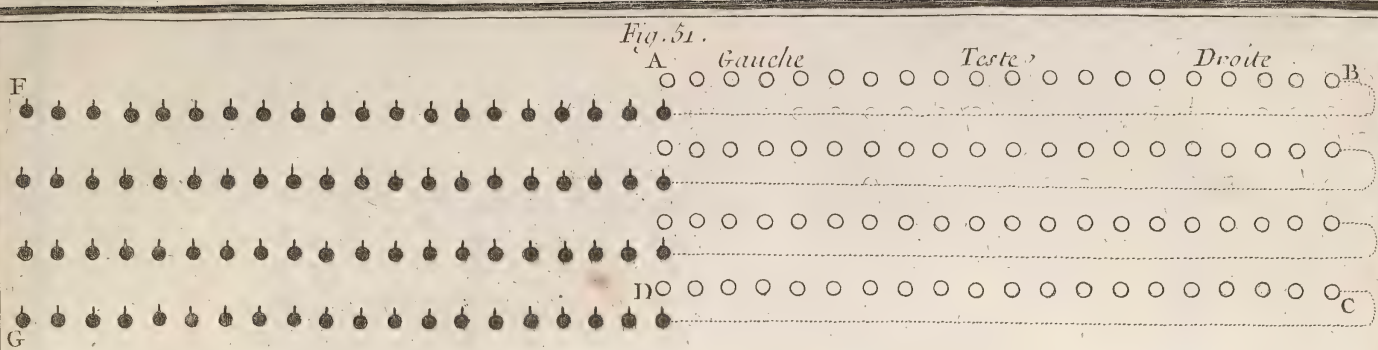 Fig. 51.
A Gauche Teste Droite B
F
D C
G